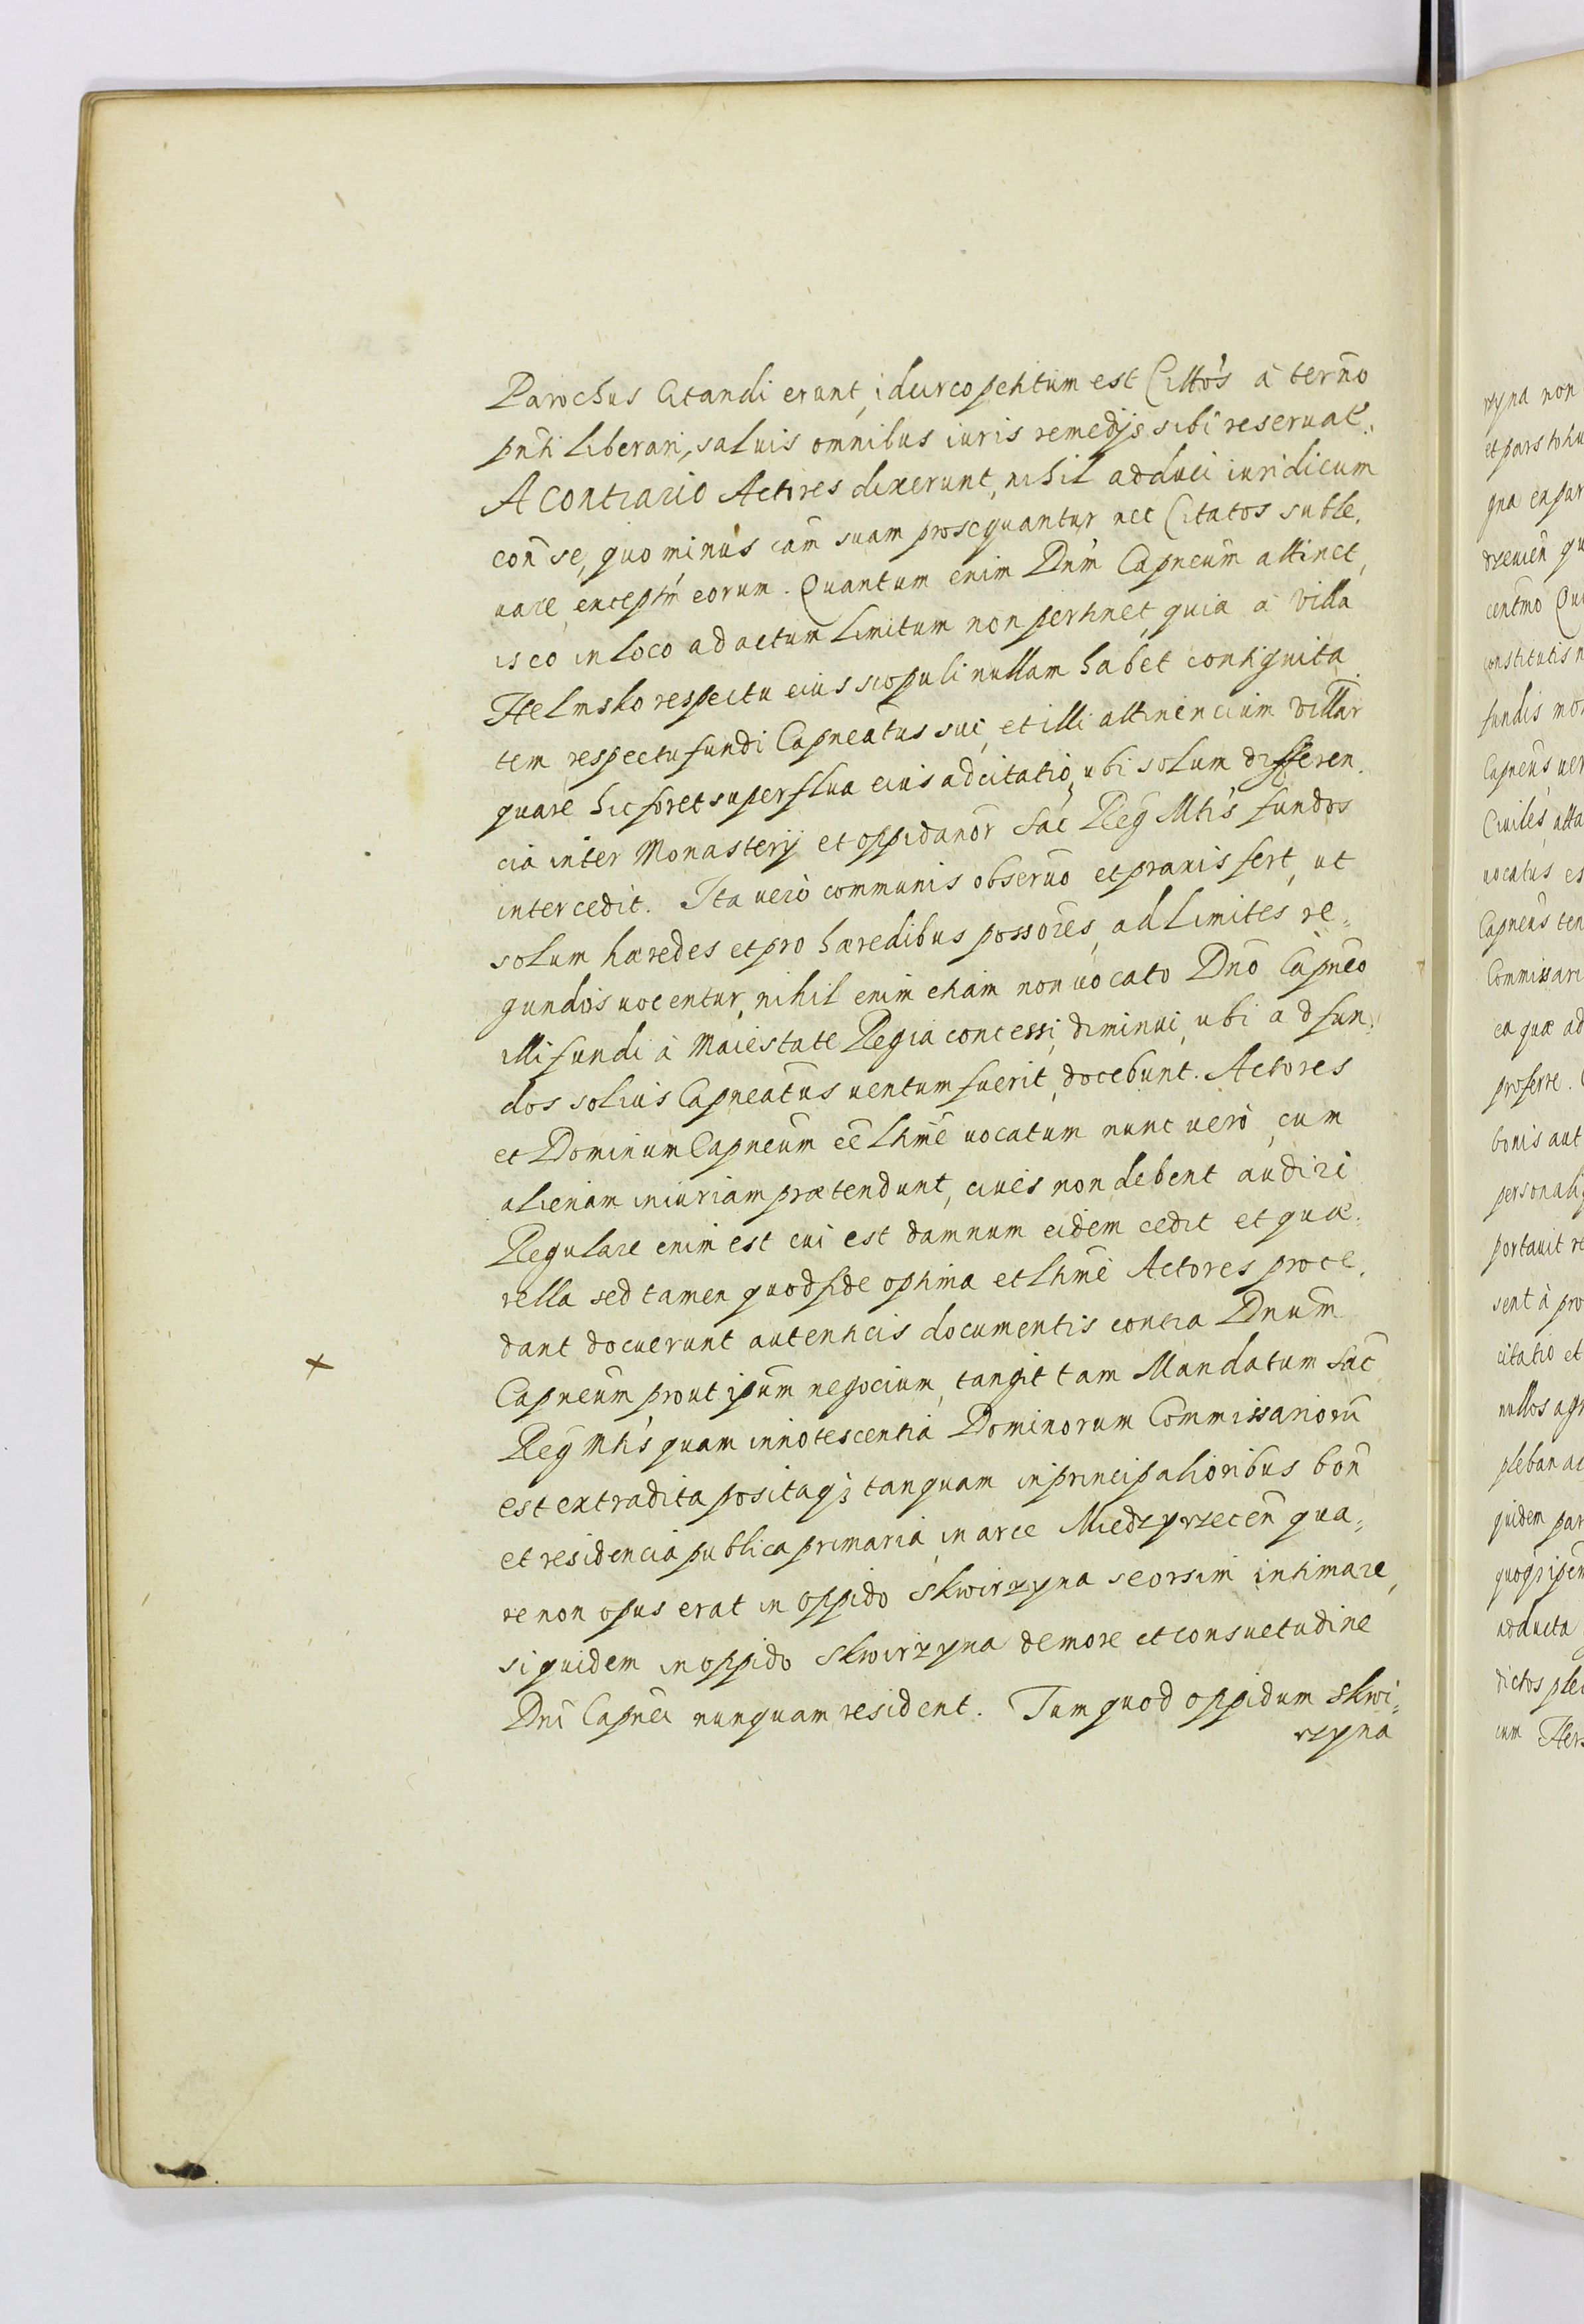 Parochus Citandi erunt, idcirco petitum est Cittos à terno
pnti liberari, saluis omnibus iuris remedijs sibi reseruat.
A contrario Actores dixerunt, nihil adduci iuridicum
con se, quo minus cam suam prosequantur nec Citatos suble,
uare, exceptm eorum. Quantum enim Dnm Capneum attinet,
is eo in loco ad actum limitum non pertinet, quia à villa
Helmsko respectu eius scopuli nullam habet contiguita
tem respectu fundi Capneatus sui, et illi attinencium villar
quare hic foret superflua eius adcitatio, ubi solum differen
cia inter Monasterij et oppidanor Sac Reg Mtis fundos
intercedit. Ita uerò communis obseruo et praxis fert, ut
solum hæredes et pro hæredibus possores, ad limites re„
gundos uocentur, nihil enim etiam non uocato Dno Capneo
illi fundi à Maiestate Regia concessi, diminui, ubi ad fun„
dos solius Capneatus uentum fuerit, docebunt. Actores
et Dominum Capneum eē Lhmē uocatum nunc uerò, cum
alienam iniuriam prætendunt, ciues non debent audiri
Regulare enim est cui est damnum eidem cedit et quæ„
rella sed tamen quod fide optima et Lhmē Actores proce„
dant docuerunt autenticis documentis contra Dnum
Capneum, prout ipum negocium, tangit tam Mandatum Sac
Reg Mtis quam innotescentia Dominorum Commissarioru
est extradita positaq; tanquam in principalioribus bon
et residencia publica primaria, in arce Miedzyrzecen qua„
re non opus erat in oppido Skwirzyna seorsim intimare,
siquidem in oppido Skwirzyna de more et consuetudine
Dni Capnei nunquam resident. Tum quod oppidum Skwi„
rzyna
rzyna non
et pars tohu
gna ex par
drzeuien qu
centmo Qui
constitutis n
fundis mo
Capneus uer
Ciuiles, atta
uocatus es
Capneus ten
Commissari
ea quæ ad
proferre.
bonis aut
personali
portauit re
sent à pro
citatio et
nullos agr
pleban ac
quidem par
quoq; ipem
adducta
dictos ple
cum Her